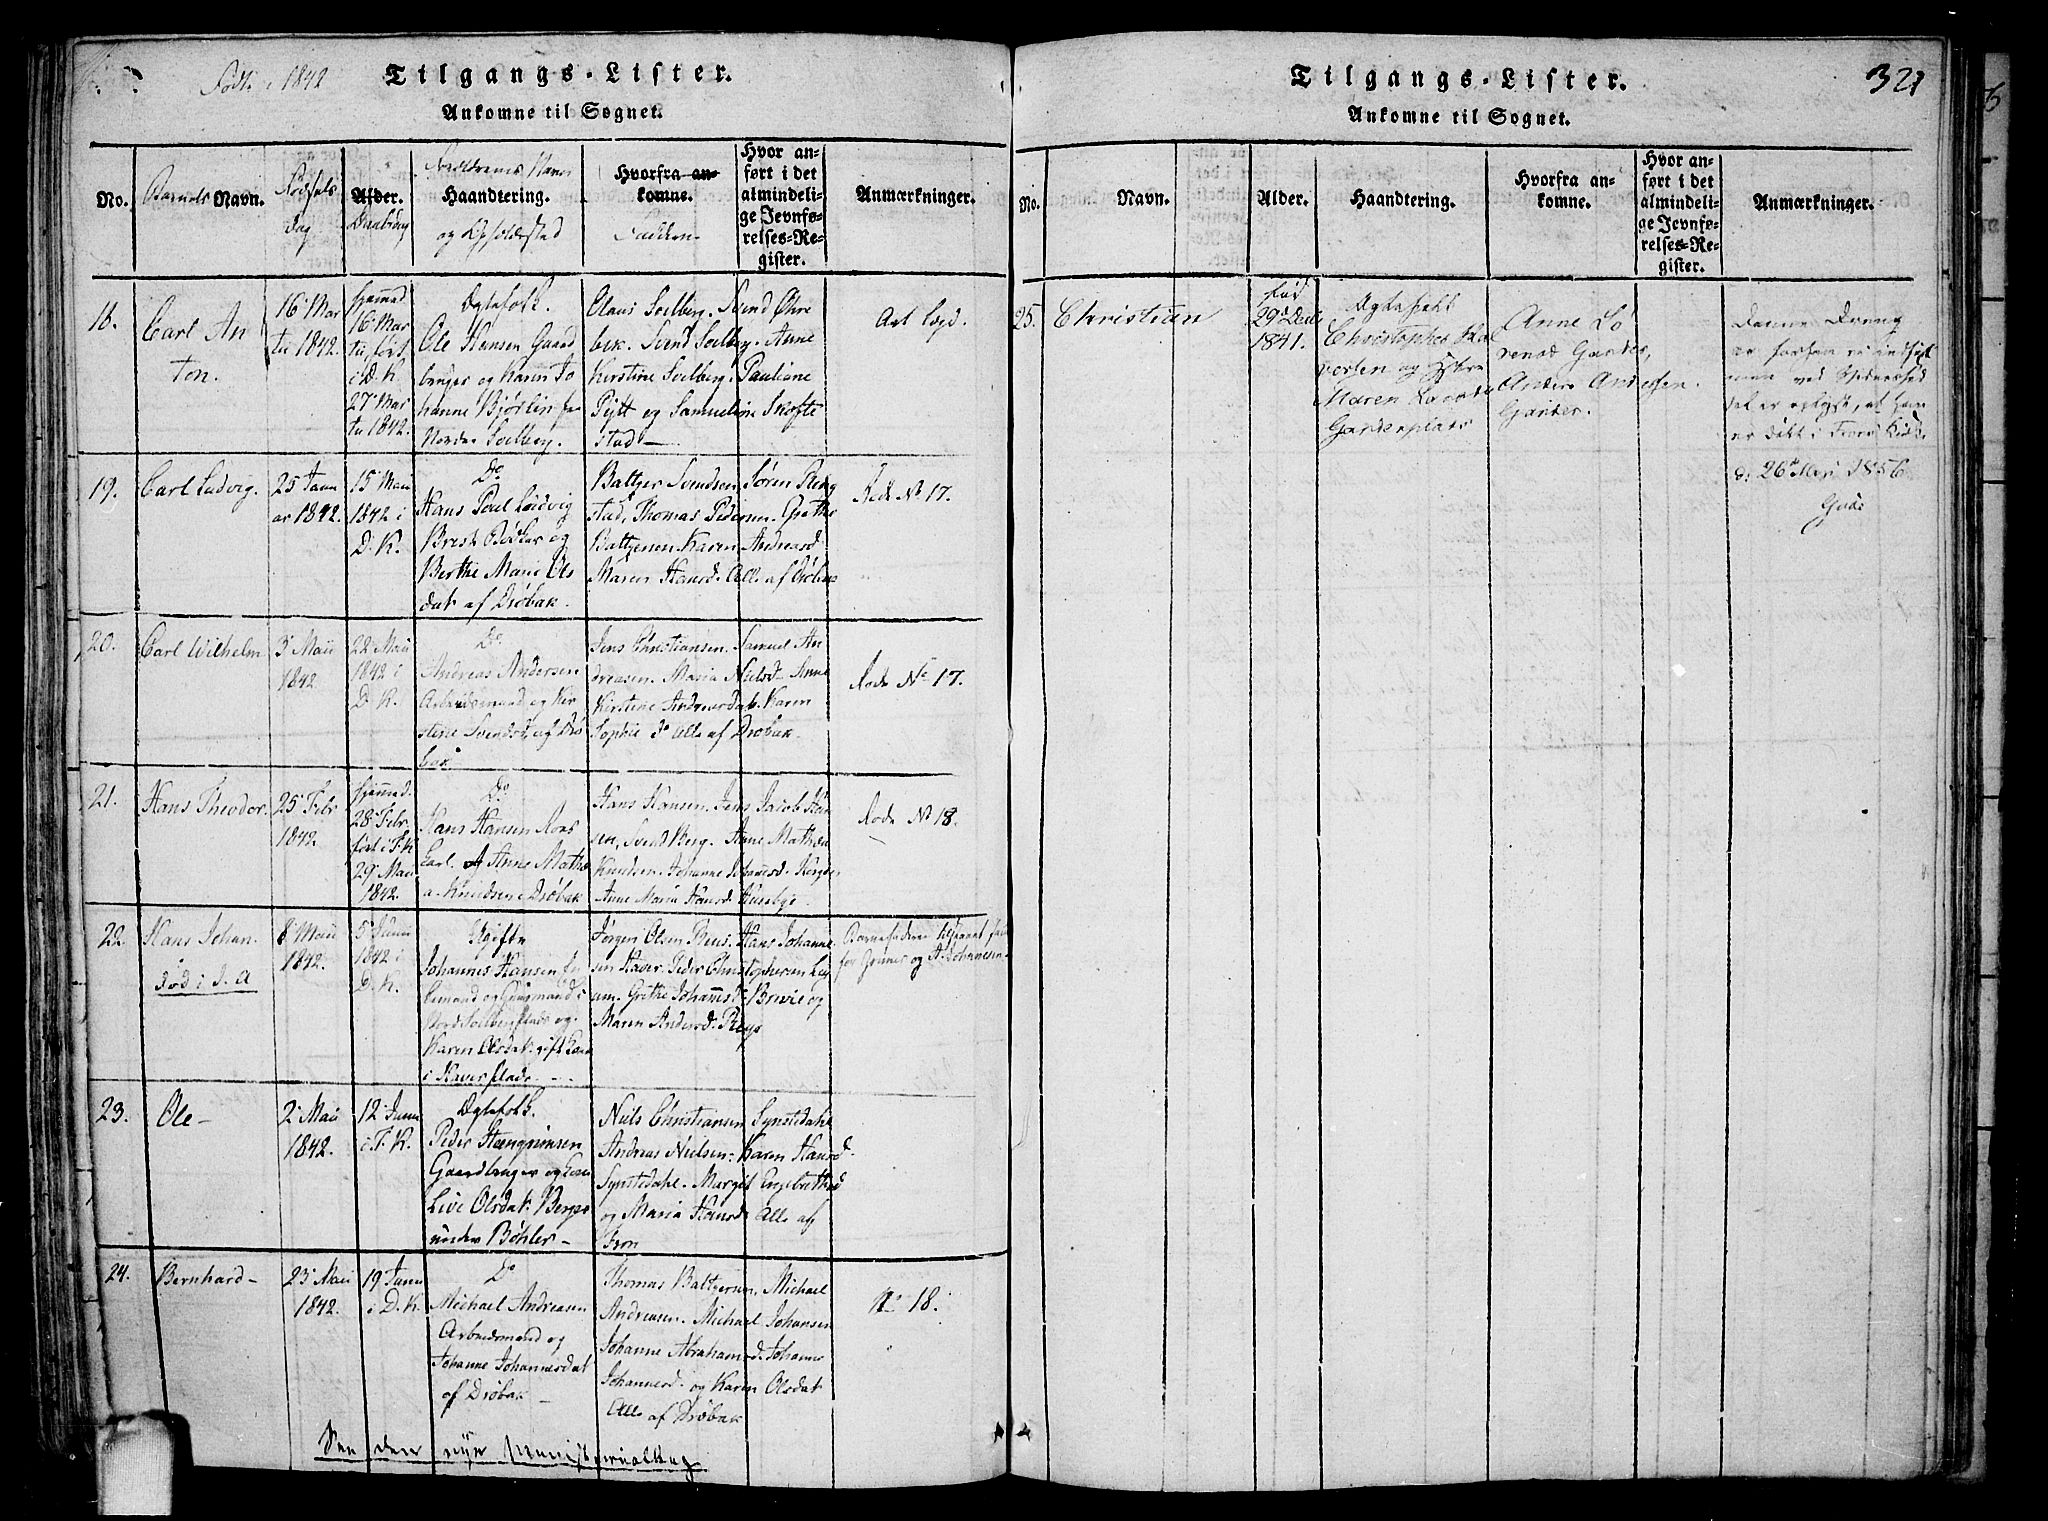 Født i 1842
Tilgangs-Lister.
Ankomne til Sognet.
No.
Barnets Navn.
Fødsels
Dag
Alder.
Daabsdag
Forældrenes Navn
Haandtering.
og Opholdsted
Hvorfra an-
komne.
Faddere
Hvor an-
ført i det
almindeli-
ge Jevnfø-
relses-Re-
gister.
Anmærkninger.
18.
Carl An
ton.
16 Mar
tii 1842.
hjemmed
16 Mar
tii, ført
i D. K.
27 Mar
tii 1842.
Ægtefolk.
Ole Hansen Gaard
bruger og Karen Jo
hanne
Nordre Solberg.
Claus Solberg. Svend Øhre
bek. Svend Solberg. Anne
Kirstine Solberg. Pauliane
og Samueline Skofte
stad
19.
Carl Ludvig.
25 Janu
ar 1842.
15 Maii
1842 i
D. K.
Do
Hans Poul Ludvig
Brest Bødker og
Berthe Marie Ols
dat af Drøbak.
Baltzer Svendsen. Søren Ring
stad, Thomas Pedersen. Grethe
Baltzersen. Karen Andreasd
Maren Hansd. Alle af Drøbak
Rode No 17.
20.
Carl Wilhelm
3 Maii
1842
22 Maii
1842 i
D. K.
Do
Andreas Andersen
Arbeidsmand og Kir
stine Svendsd, af Drø
bak
Jens Christiansen. Samuel An
dreasen. Maria Nielsd. Anne
Kirstine Andreasdat. Karen
Sophie Do Alle af Drøbak.
Rode No 17.
21.
Hans Theodor.
25 Febr
1842.
hjemmed.
28 Febr
ført i F. K
29 Maii
1842.
Do
Hans Hansen Rors
karl. Anne Mathe
a Knudsen Drøbak
Hans Hansen. Jens Jacob Han
sen, Svend Berg. Anne Mathea
Knudsen. Johanne Johannesd.
Anne Maria Hansd. Huseby.
Rode No 18.
22.
Hans Johan.
død i J. A
8 Maii
1842.
5 Junii
1842 i
D. K.
Ugifte
Johannes Hansen
og Gaasmand i
Nord Solberg plads og
Karen Olsdat. gift
i Haver plads
Jørgen Olsen Reis. Hans Johanne
sen Haver. Peder Christophersen
um. Grethe Johannsd. Brevie og
Maren Andersd. Reis
Barnefaderen
for og H. Johannesen
23.
Ole
2 Maii
1842.
12 Junii
i F. K.
Ægtefolk.
Peder Hængrimsen
Gaardbruger og Kone
Live Olsdat. Berger
under Bøhler
Niels Christiansen Synstedahl
Andreas Nielsen. Karen Hansd
Synstedahl. Margit Engebrethsd
og Maria Hansd. Alle af
Fron
24.
Bernhard
23 Maii
1842.
19 Junii
i D. K.
Do
Michael Andreasen
Arbeidsmand og
Johanne Johannesdat
af Drøbak
Thomas Baltzersen. Michael
Andreasen. Michael Johansen
Johanne Abrahamsd. Johanne
Johannesd. og Karen Olsdat
Alle af Drøbak
No 18.
See den nye Ministerialbog
Tilgangs-Lister.
Ankomne til Sognet.
321
No.
Navn.
Alder.
Haandtering.
Hvorfra an-
komne.
Hvor an-
ført i det
almindeli-
ge Jevnfø-
relses-Re-
gister.
Anmærkninger.
25.
Christian
fød
29 Decbr
1841.
Ægtefolk
Christopher Hal
vorsen og Hustru
Maren
Garderplads
Anne Lo
rensd Garder,
Anders Andersen
Garder.
Denne Dreng
er indført
men ved
det er oplyst, at han
er døbt i Frons Kirke
d. 26 Mai 1856.
Gude